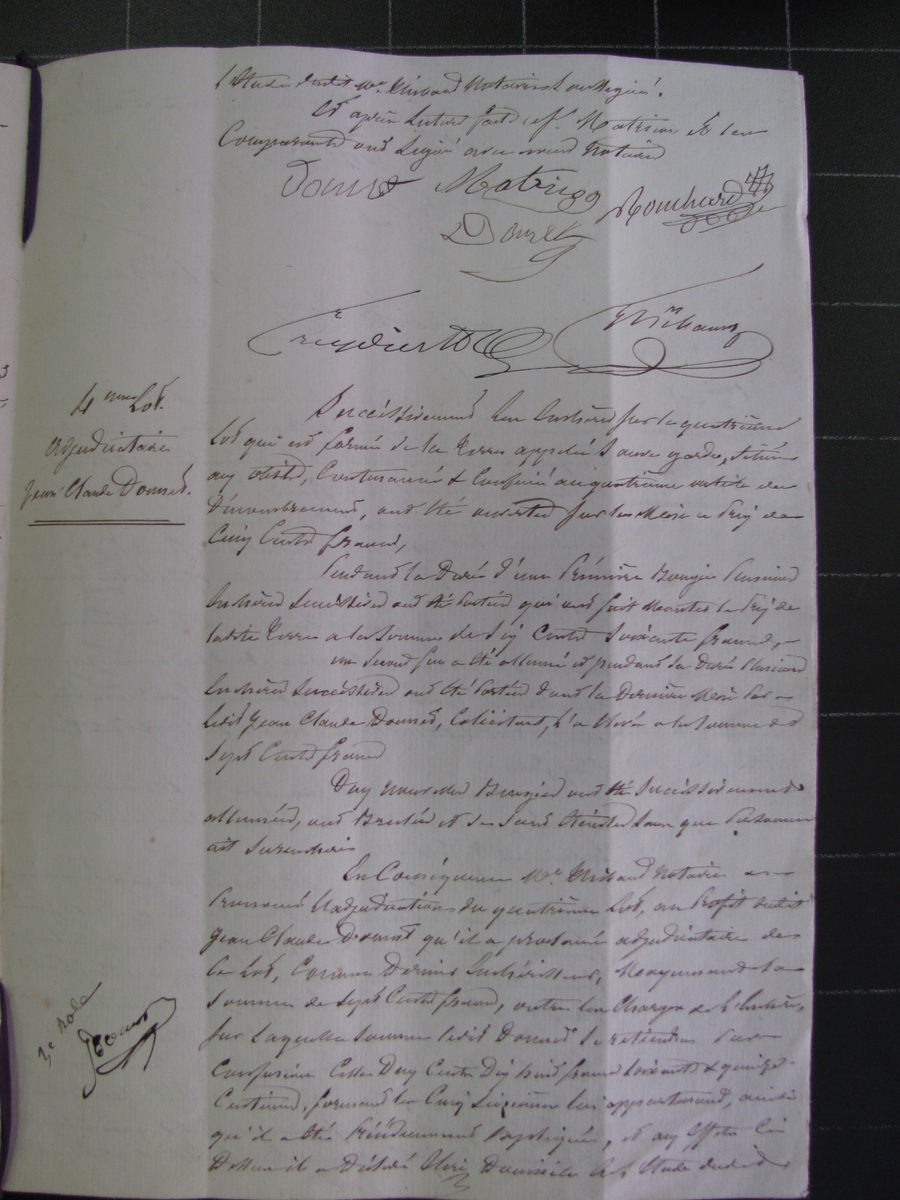 l'Etude dudit Me Thibaud Notaire soussigné.
Et après lecture faite, Matrion et les
Comparants ont signé avec nous Notaires
Donnet Bouchard
Donnet
4eme Lot.
adjudicataire
Jean Claude Donnet.
Successivement les Enchères sur le quatrième
Lot qui est formé de la Terre appelée Sauve garde, située
au dit, Contenancé & Confiné au quatrième article du
Dénombrement, ont été ouvertes sur la Mise à Prix de
Cinq Cents francs,
Pendant la Durée d'une Première Bougie Plusieurs
Enchères Successives ont été Portées qui ont fait Monter le Prix de
ladite Terre à la Somme de Six Cents Soixante francs,
un Second feu a été allumé et pendant sa Durée Plusieurs
Enchères Successives ont été Portées dont la Dernière Mise Par
Ledit Jean Claude Donnet, Colicitant, l'a élevée à la Somme de
Sept Cents francs
Deux nouvelles Bougies ont été Successivement
allumées, ont Brulées et se sont éteintes sans que Personne
ait Surenchéri
En Conséquence Me Thibaud Notaire a
Prononcé l'adjudication du quatrième Lot, au Profit dudit
Jean Claude Donnet qu'il a proclamé adjudicataire de
ce Lot, Comme Dernier Enchérisseur, Moyennant la
Somme de Sept Cents francs, outre les Charges de l'Enchère,
Sur laquelle Somme ledit Donnet Se retiendra Par
Confusion Celle De Cents Dix huit francs Soixante & quinze
Centimes, formant les Cinq Seizièmes lui appartenant, ainsi
qu'il a été Précédemment Expliqué, et aux effets Ci
Dessus il a Déclaré Elire Domicile en l'Etude dudit
3e Rôle